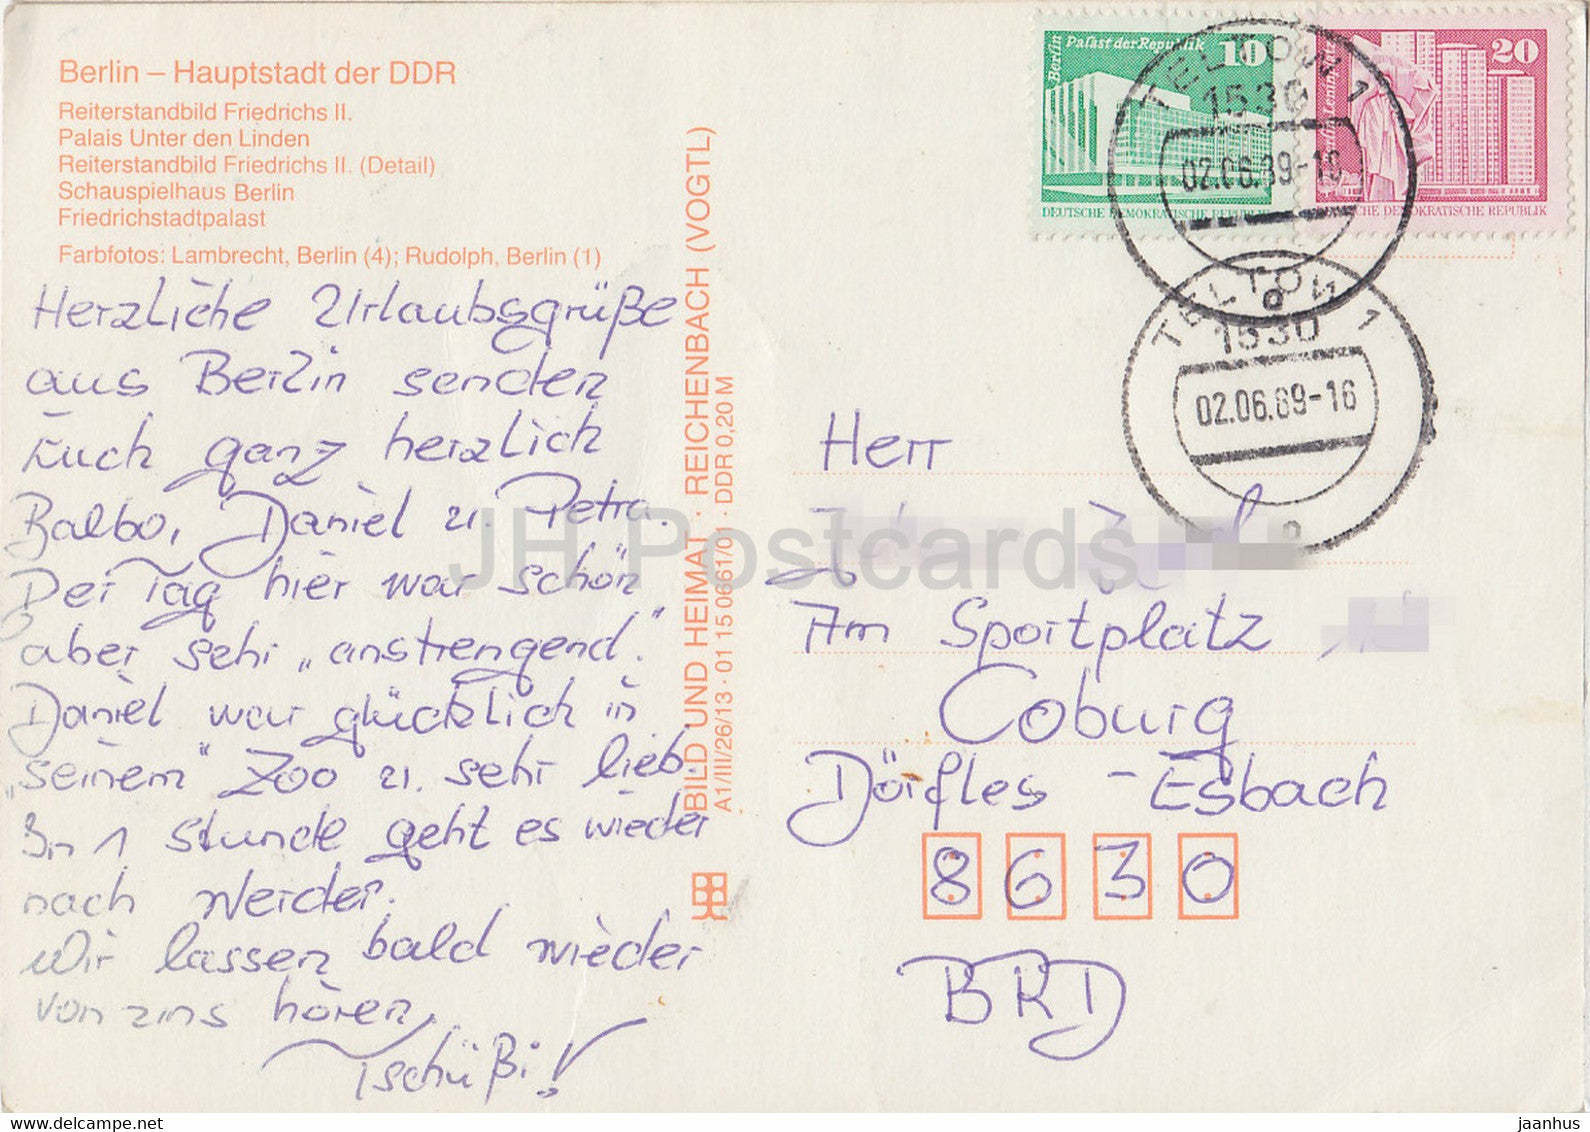 Berlin – Hauptstadt der DDR
Reiterstandbild Friedrichs II.
Palais Unter den Linden
Reiterstandbild Friedrichs II. (Detail)
Schauspielhaus Berlin
Friedrichstadtpalast
Farbfotos: Lambrecht, Berlin (4); Rudolph, Berlin (1)
Herzliche Urlaubsgrüße
aus Berlin senden
Euch ganz herzlich
Balbo, Daniel u. Petra.
Der Tag hier war schön
aber sehr „anstrengend."
Daniel war glücklich in
„seinem" Zoo u. sehr lieb.
In 1 Stunde geht es wieder
nach Werder.
Wir lassen bald wieder
von uns hören.
Tschüßi!
BILD UND HEIMAT · REICHENBACH (VOGTL)
A1/III/26/13 · 01 15 0661/01 · DDR 0,20 M
Berlin
Palast der Republik 10
DEUTSCHE DEMOKRATISCHE REPUBLIK
20
DEMOKRATISCHE REPUBLIK
TELTOW 1
1530
02.06.89-16
TELTOW 1
1530
02.06.89-16
Herr
Am Sportplatz
Coburg
Dörfles-Esbach
8630
BRD
JH Postcards
delcampe.net
jaanhus